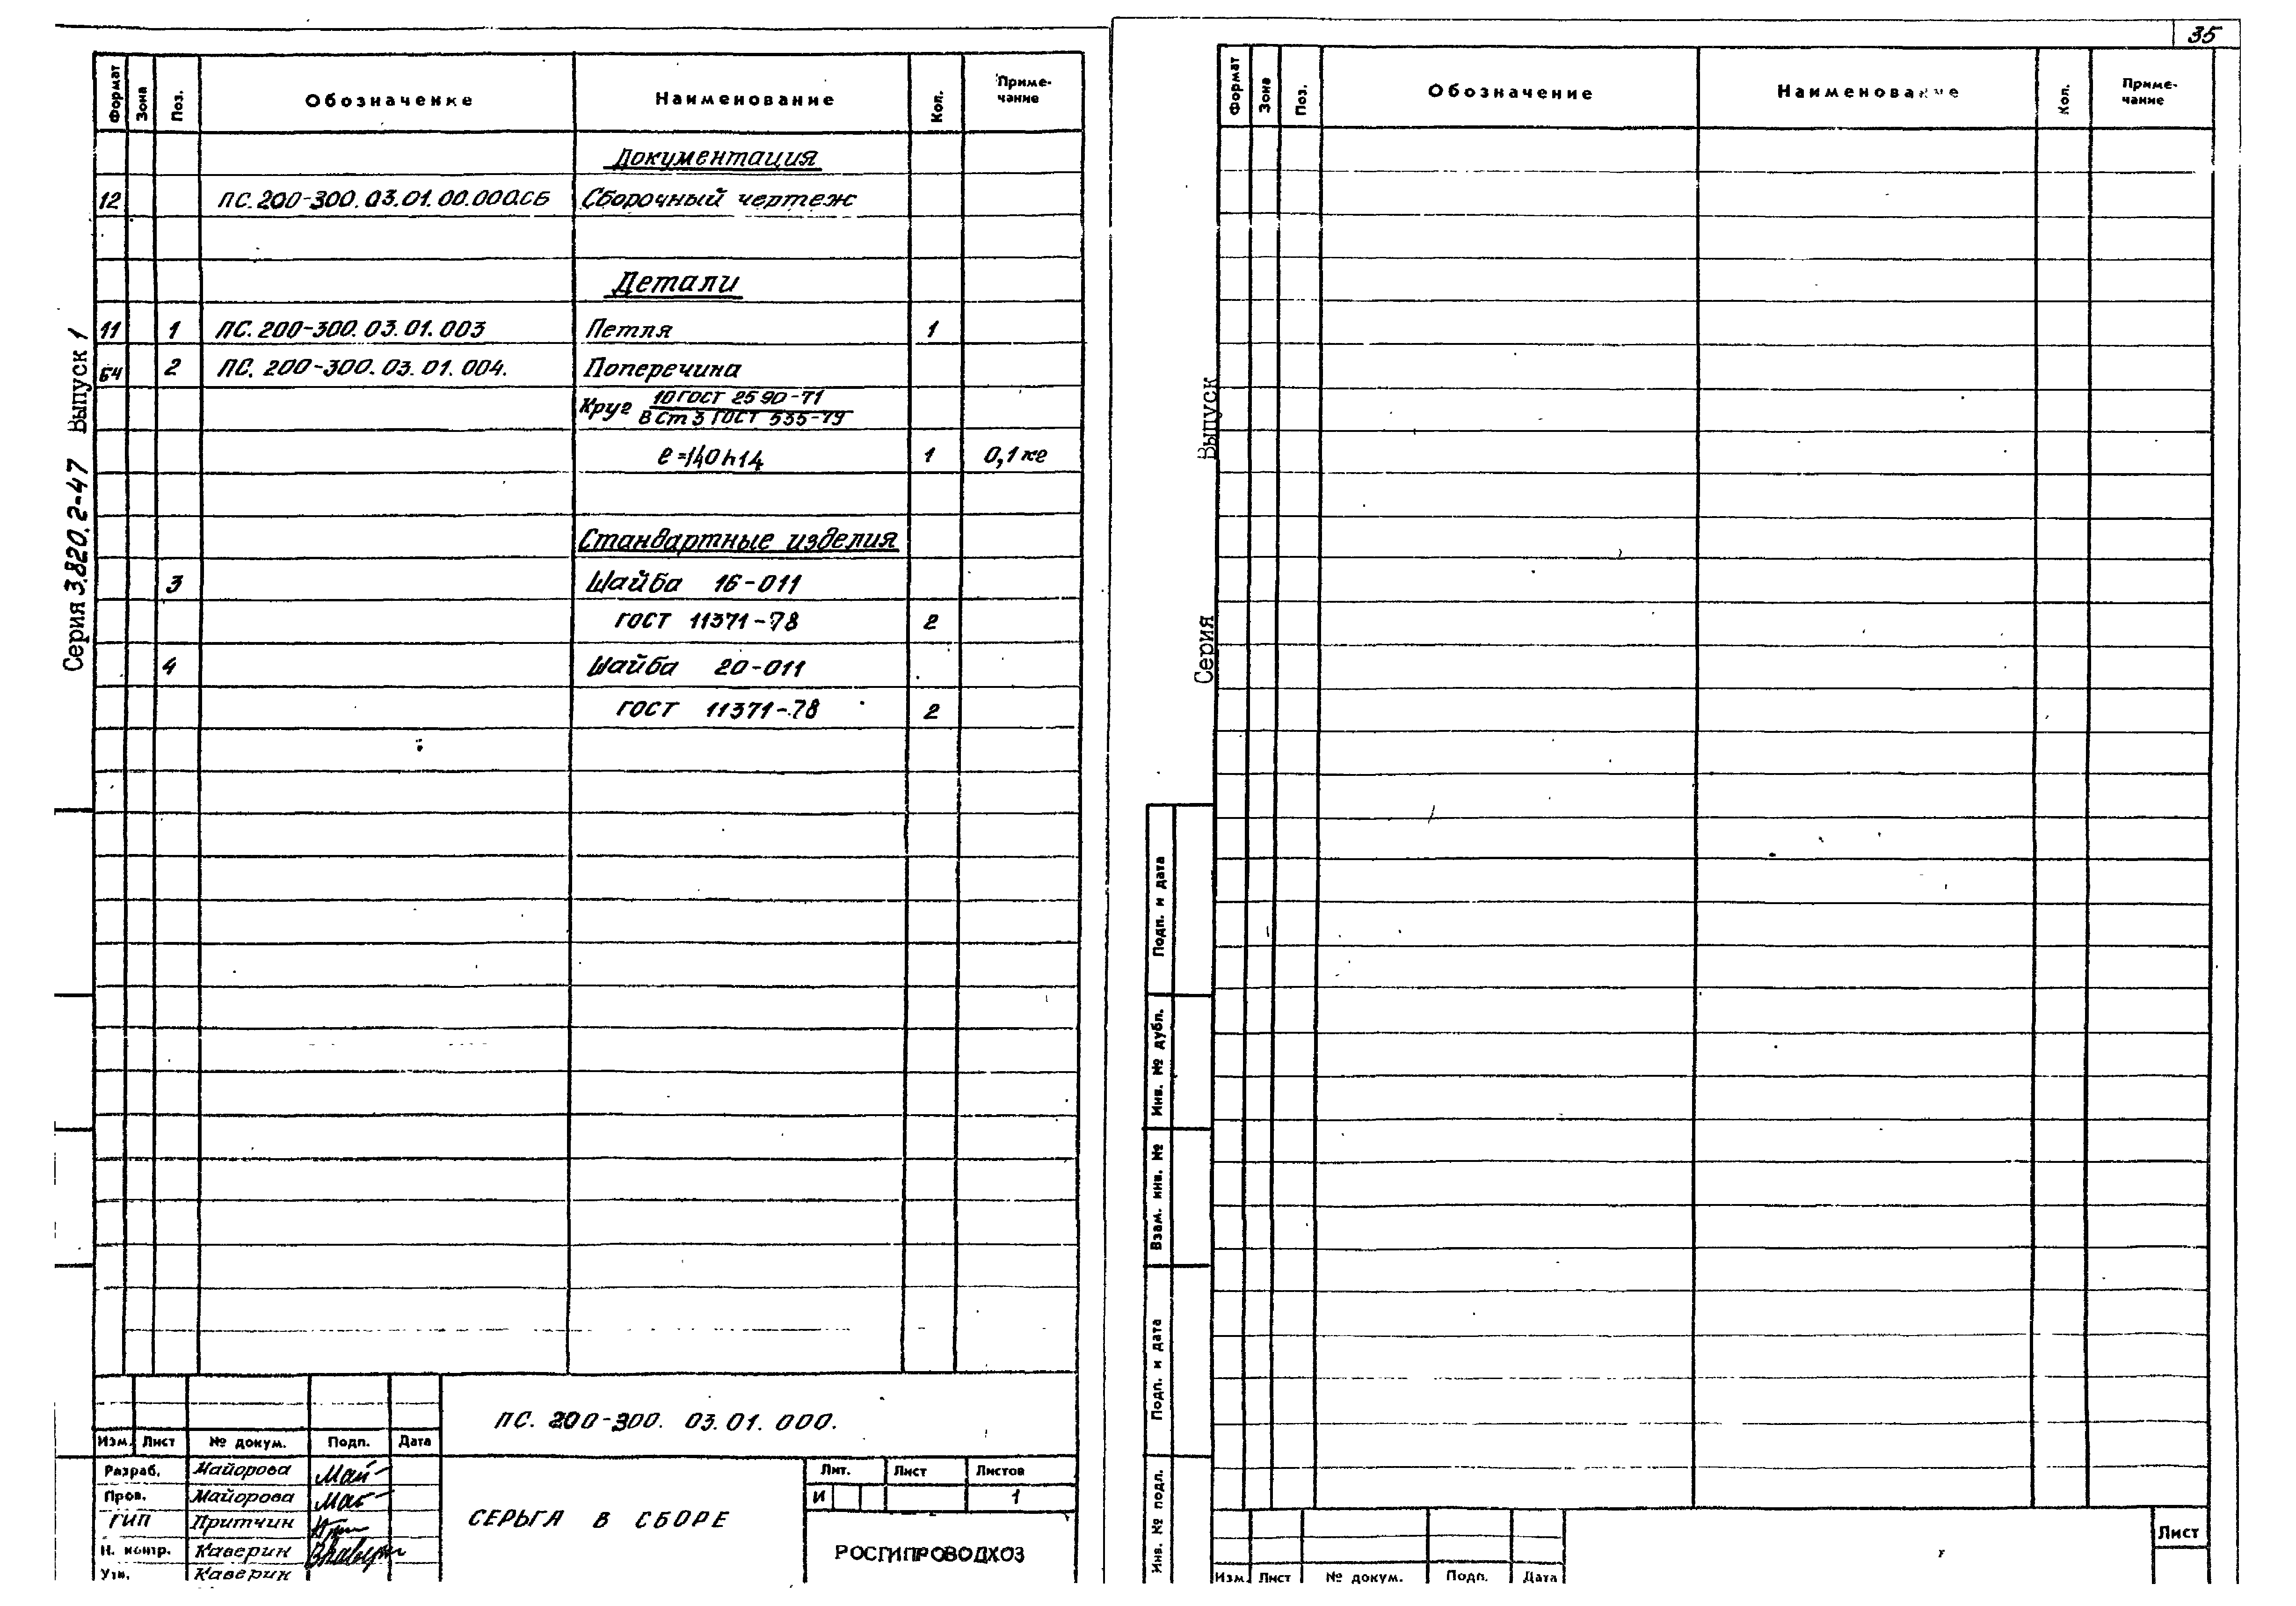 35
Формат Зона Поз. Обозначение Наименование Кол. Приме-
чание
Документация
12 ПС.200-300.03.01.00.000.СБ Сборочный чертеж
Детали
11 1 ПС.200-300.03.01.003 Петля 1
БЧ 2 ПС.200-300.03.01.004. Поперечина
Круг 10 ГОСТ 2590-71
В Ст 3 ГОСТ 535-79
ℓ=140h14 1 0,1 кг
Стандартные изделия
3 Шайба 16-011
ГОСТ 11371-78 2
4 Шайба 20-011
ГОСТ 11371-78 2
Серия 3.820.2-47 Выпуск 1
ПС. 200-300. 03.01. 000.
Изм. Лист № докум. Подп. Дата
Разраб. Майорова Май
Пров. Майорова
ГИП Притчин
Н. контр. Каверин
Утв. Каверин
СЕРЬГА В СБОРЕ
Лит. Лист Листов
И 1
РОСГИПРОВОДХОЗ
Формат Зона Поз. Обозначение Наименование Кол. Приме-
чание
Серия Выпуск
Подп. и дата
Инв. № дубл.
Взам. инв. №
Подп. и дата
Инв. № подл.
Изм. Лист № докум. Подп. Дата
Лист